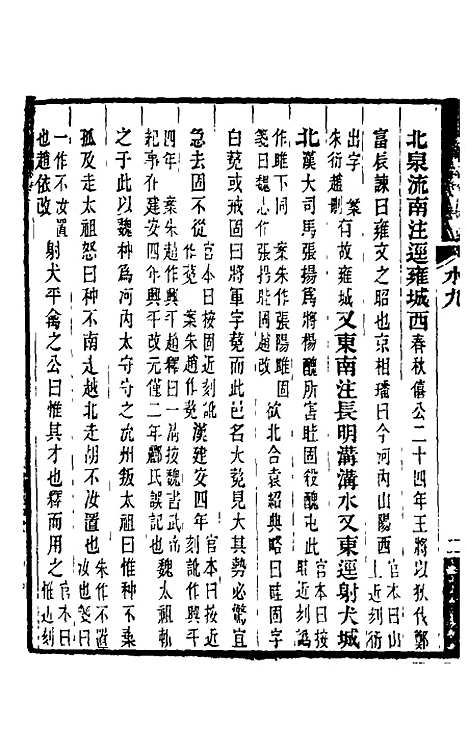 北泉流南注逕雍城西春秋僖公二十四年王將以狄伐鄭
富辰諫曰雍文之昭也京相璠曰今河內山陽西官本曰山上近刻衍
出字案朱衍趙刪有故雍城又東南注長明溝溝水又東逕射犬城
北漢大司馬張揚爲將楊醜所害眭固殺醜屯此官本曰按近刻
作雎下同案朱作張陽雎固箋曰魏志作張揚眭固趙改欲北合袁紹典略曰眭固字
白菟或戒固曰將軍字菟而此邑名犬菟見犬其勢必驚宜
急去固不從官本曰按固近刻訛作菟案朱趙作菟漢建安四年官本曰按近刻訛作興平
四年案朱趙作興平趙釋曰一清按魏書武帝紀事在建安四年興平改元僅二年酈氏誤記也魏太祖斬
之于此以魏种爲河內太守守之兗州叛太祖曰惟种不棄
孤及走太祖怒曰种不南走越北走胡不汝置也朱作不置汝也箋曰
一作不汝置也趙依改射犬平禽之公曰惟其才也釋而用之官本曰惟近刻
水九